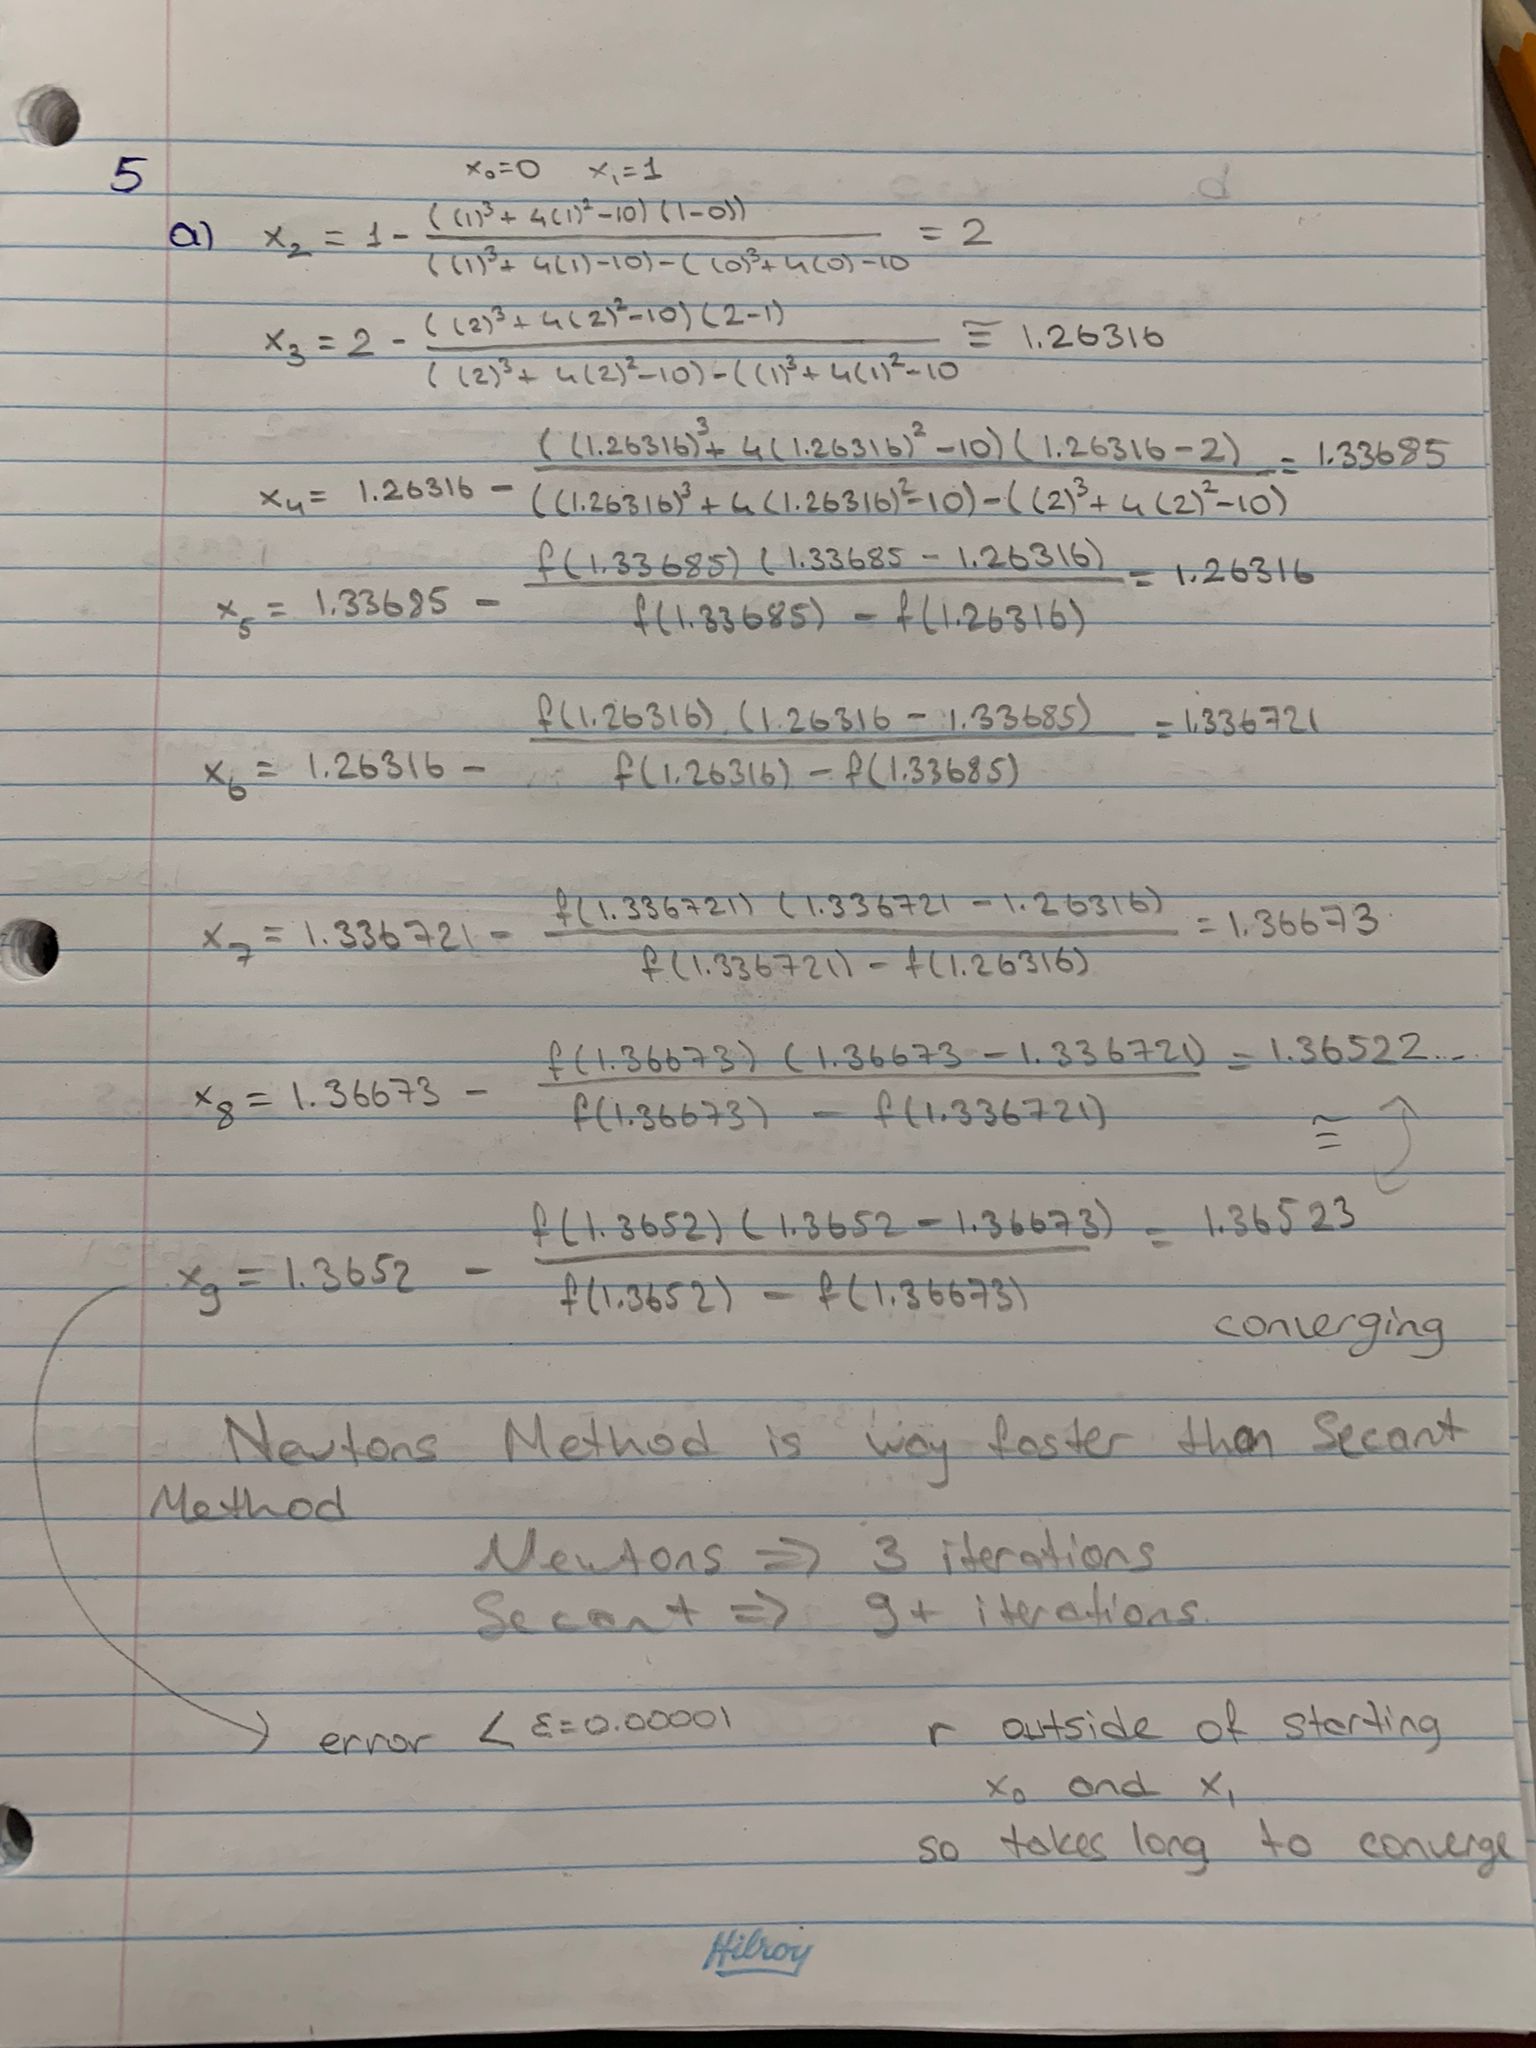 5
x₀=0 x₁=1
a) x₂ = 1 - ((1)³ + 4(1)² -10) (1-0)) / ((1)³ + 4(1) -10) - ((0)³ + 4(0) -10 = 2
x₃ = 2 - ((2)³ + 4(2)² -10) (2-1) / ((2)³ + 4(2)² -10) - ((1)³ + 4(1)² -10 ≅ 1.26316
x₄ = 1.26316 - ((1.26316)³ + 4(1.26316)² -10) (1.26316 - 2) / ((1.26316)³ + 4(1.26316)² -10) - ((2)³ + 4(2)² -10) = 1.33685
x₅ = 1.33685 - f(1.33685) (1.33685 - 1.26316) / f(1.33685) - f(1.26316) = 1.26316
x₆ = 1.26316 - f(1.26316) (1.26316 - 1.33685) / f(1.26316) - f(1.33685) = 1.336721
x₇ = 1.336721 - f(1.336721) (1.336721 - 1.26316) / f(1.336721) - f(1.26316) = 1.36673
x₈ = 1.36673 - f(1.36673) (1.36673 - 1.336721) / f(1.36673) - f(1.336721) = 1.36522...
≅
x₉ = 1.3652 - f(1.3652) (1.3652 - 1.36673) / f(1.3652) - f(1.36673) = 1.36523
converging
Newtons Method is way faster than Secant
Method
Newtons => 3 iterations
Secant => 9+ iterations.
error < ε=0.00001
r outside of starting
x₀ and x₁
so takes long to converge
Hilroy